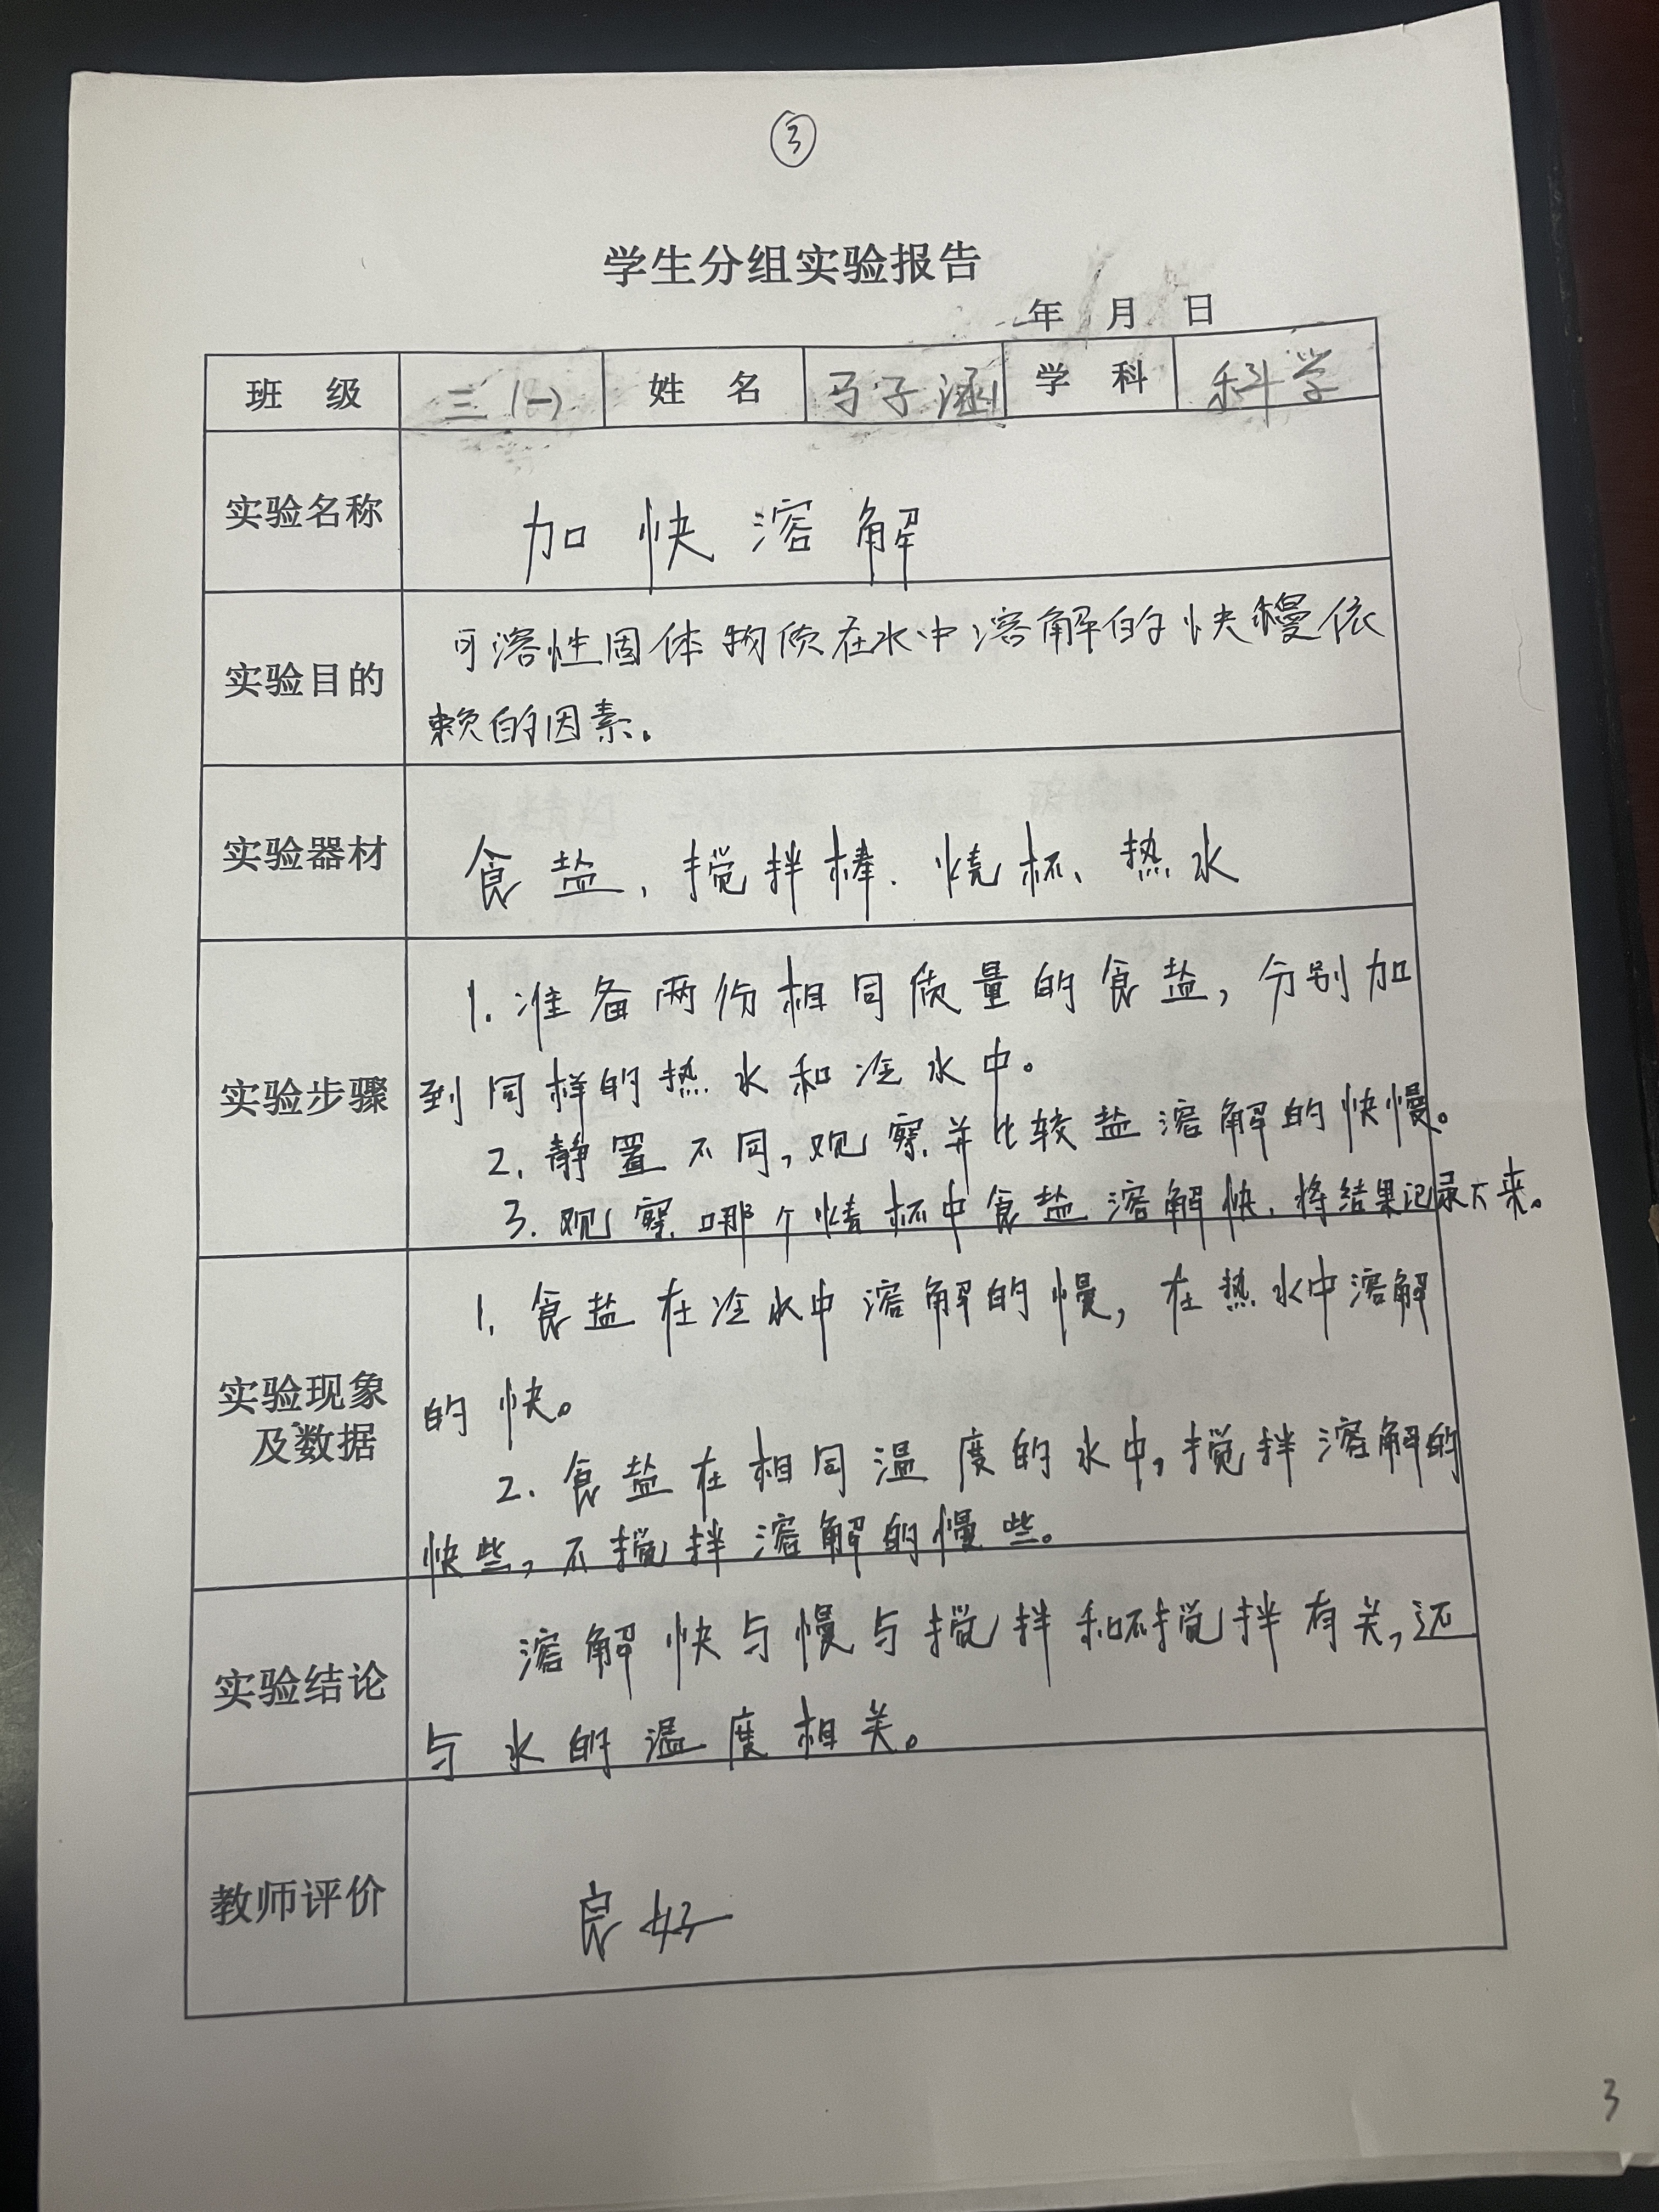 ③
学生分组实验报告
年 月 日
班 级 三(一) 姓 名 马子涵 学 科 科学
实验名称 加快溶解
实验目的 可溶性固体物质在水中溶解的快慢依
赖的因素。
实验器材 食盐、搅拌棒、烧杯、热水
实验步骤 1.准备两份相同质量的食盐,分别加
到同样的热水和冷水中。
2.静置不同,观察并比较盐溶解的快慢。
3.观察哪个烧杯中食盐溶解快,将结果记录下来。
实验现象
及数据
1.食盐在冷水中溶解的慢,在热水中溶解
的快。
2.食盐在相同温度的水中,搅拌溶解的
快些,不搅拌溶解的慢些。
实验结论 溶解快与慢与搅拌和不搅拌有关,还
与水的温度相关。
教师评价 良好
3